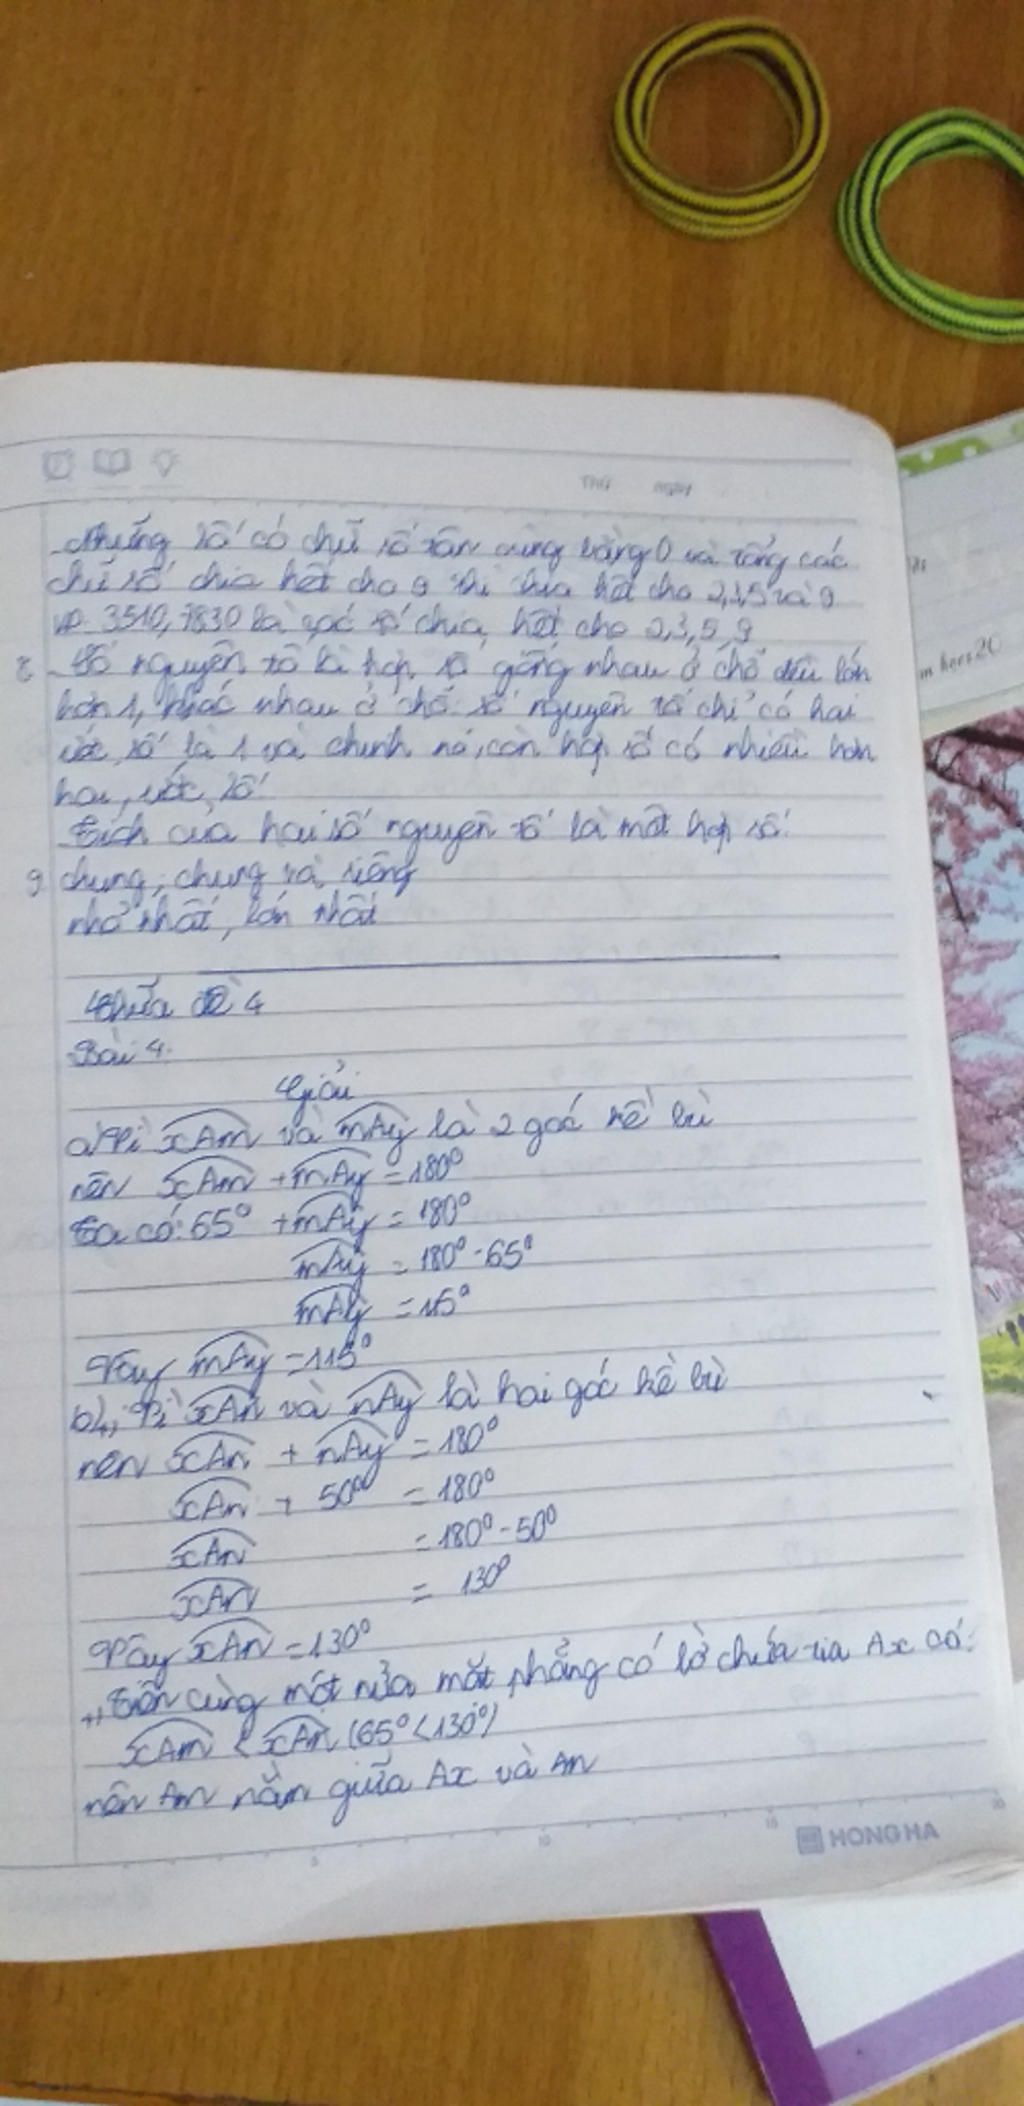 THỨ NGÀY
Những số có chữ số tận cùng bằng 0 và tổng các
chữ số chia hết cho 9 thì chia hết cho 2,3,5 và 9
VD 3510, 7830 là các số chia hết cho 2,3,5,9
8 Số nguyên tố là hợp số giống nhau ở chỗ đều lớn
hơn 1, khác nhau ở chỗ: số nguyên tố chỉ có hai
ước số là 1 và chính nó, còn hợp số có nhiều hơn
hai ước số
Tích của hai số nguyên tố là một hợp số.
9 chung, chung và riêng
nhỏ nhất, lớn nhất
Chữa đề 4
Bài 4.
Giải
a) Vì xAm và mAy là 2 góc kề bù
nên xAm + mAy = 180°
Ta có: 65° + mAy = 180°
mAy = 180° - 65°
mAy = 115°
Vậy mAy = 115°
b), Vì xAn và nAy là hai góc kề bù
nên xAn + nAy = 180°
xAn + 50° = 180°
xAn = 180° - 50°
xAn = 130°
Vậy xAn = 130°
Trên cùng một nửa mặt phẳng có bờ chứa tia Ax có:
xAm < xAn (65° < 130°)
nên Am nằm giữa Ax và An
5 10 15 20
HONG HA